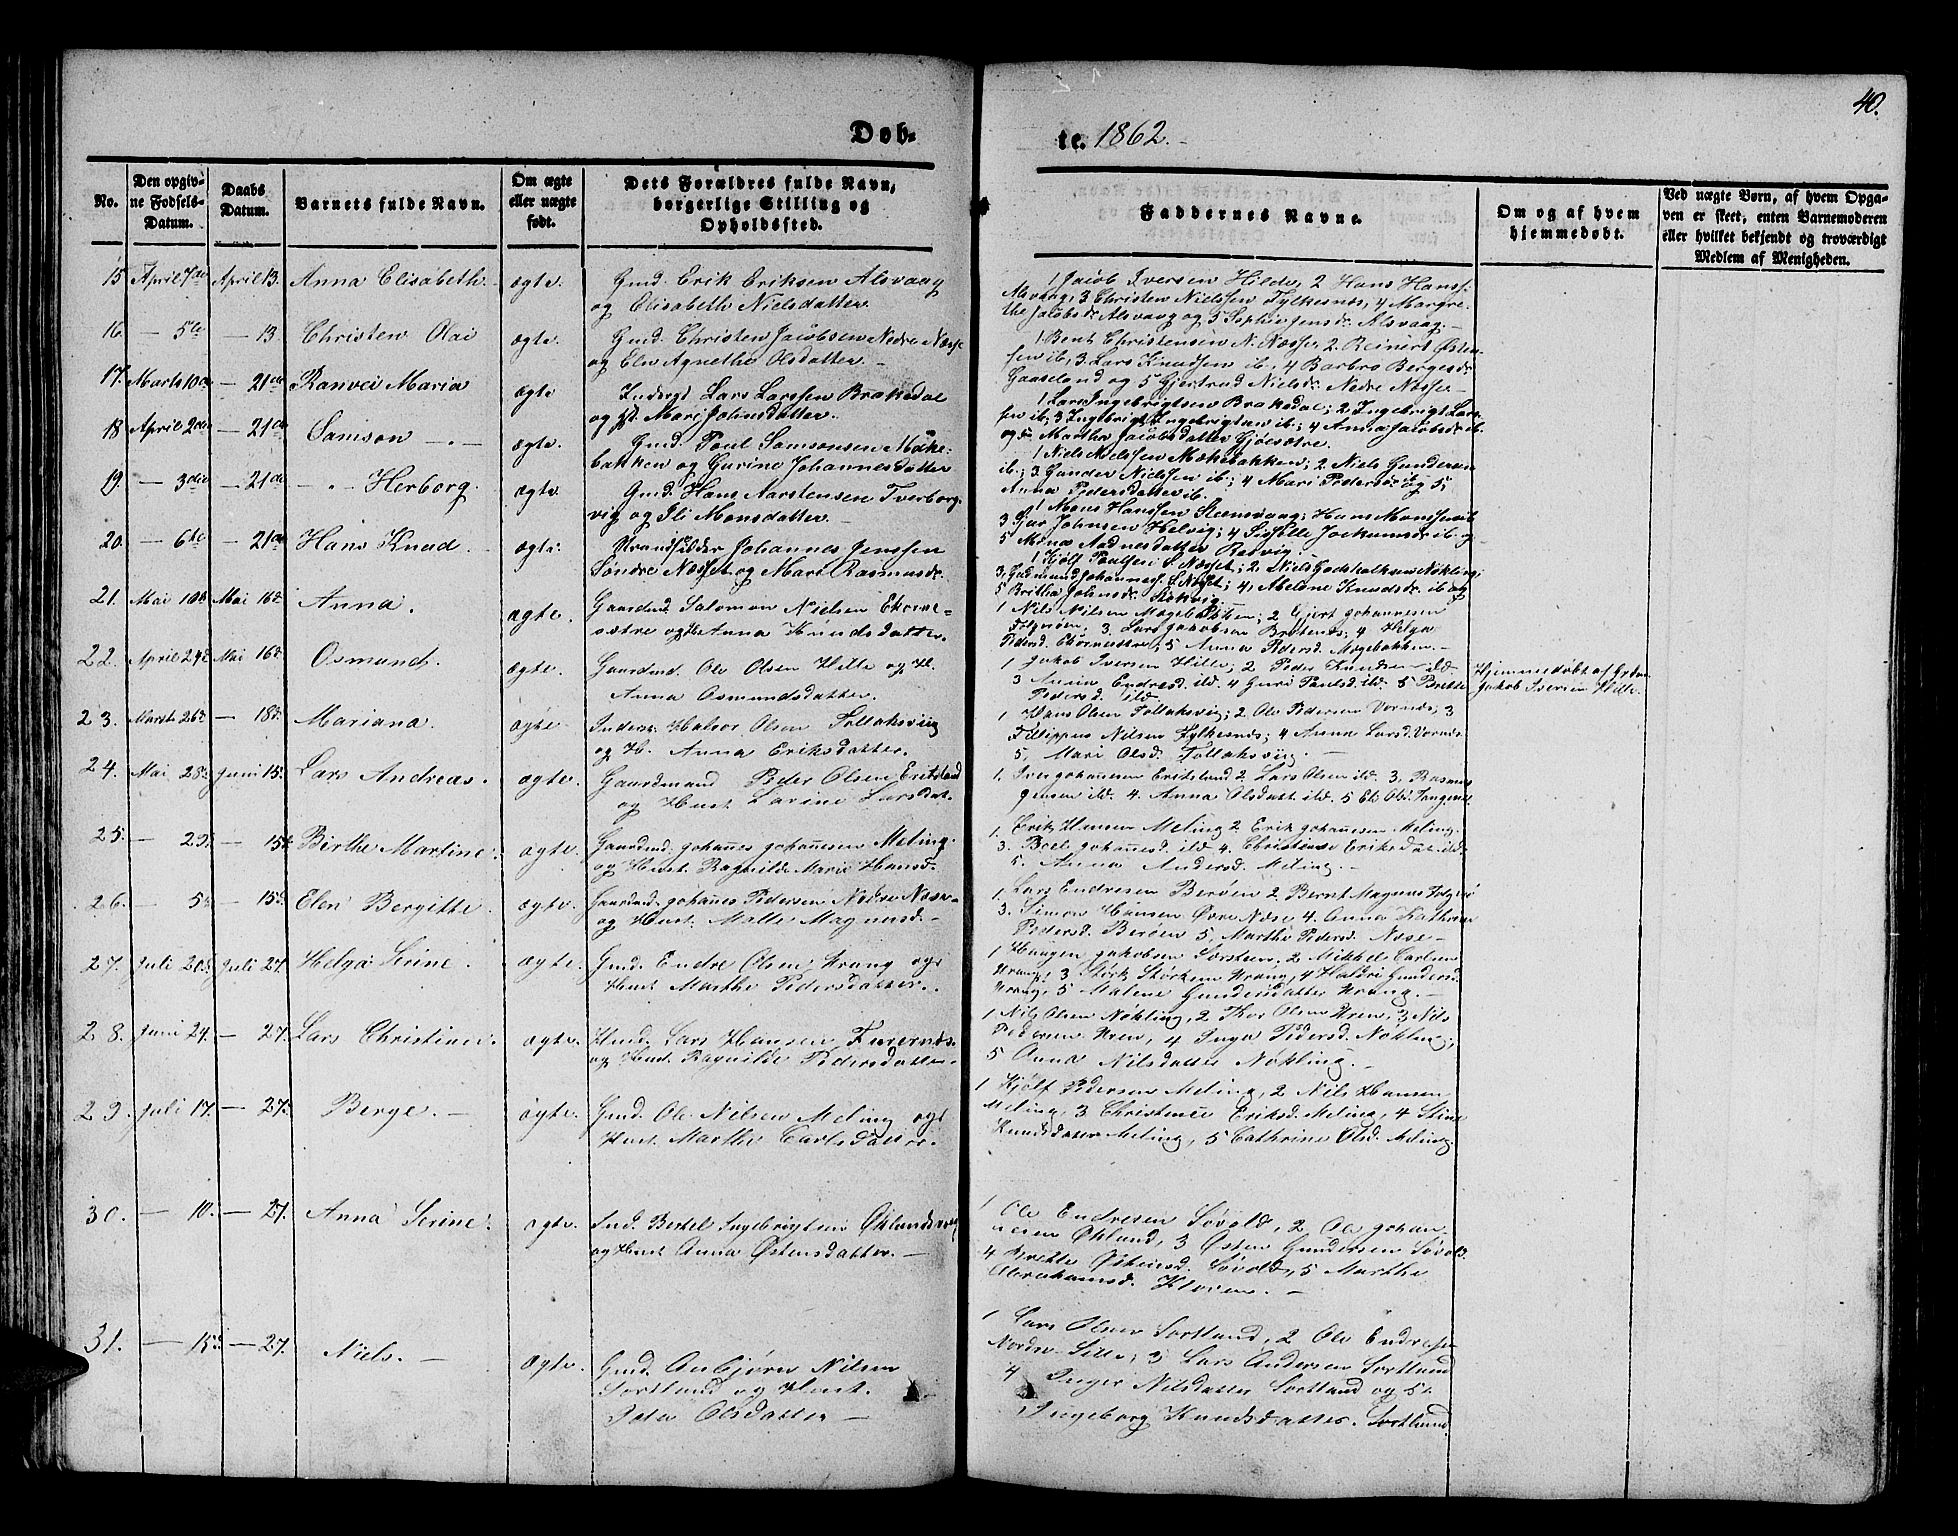 40.
Døb-
te. 1862.
No.
Den opgiv-
ne Fødsels-
Datum.
Daabs
Datum.
Barnets fulde Navn.
Om ægte
eller uægte
født.
Dets Forældres fulde Navn,
borgerlige Stilling og
Opholdssted.
Faddernes Navne.
Om og af hvem
hjemmedøbt.
Ved uægte Børn, af hvem Opga-
ven er skeet, enten Barnemoderen
eller hvilket bekjendt og troværdigt
Medlem af Menigheden.
15 April 7de April 13. Anna Elisabeth. ægte. Gmd. Erik Eriksen Alsvaag
og Elisabeth Nielsdatter.
1 Jacob Iversen Hilde, 2 Hans Hans-
Alsvaag, 3 Christen Nielssen Fylkesnæs, 4 Margre-
the Jacobsdr. Alsvaag og 5 Sophie Jensdr. Alsvaag.
16. — 5te — 13. Christen Olai ægte. Gmd. Christen Jacobsen Nedre Næsse
og Elen Agnethe Olsdatter. —
1. Bent Christensen N. Næsse, 2. Reinert Østen-
sen ib, 3 Lars Knudsen ib, 4 Barbro Bergesdr.
Gaaseland og 5 Gjertrud Nielsdr. Nedre Næsse —
17. Marts 10de — 21de Ranvei Maria ægte Inderst Lars Larssen Brakedal
og Mari Johnsdatter.
1 Lars Ingebrigtsen Brakedal; 2 Ingebrigt Lars-
sen ib; 3 Ingebrigt Ingebrigtsen ib; 4 Anna Jacobsdr. ib.
og 5. Martha Jacobsdatter Gjøesætre.
18 April 2den — 21de Samson —"— ægte. Gmd. Poul Samsonsen Mæke-
bakken og Gurine Johannesdatter
1 Niels Nielssen Mækebakken; 2. Niels Gundersen
ib.; 3 Gunder Nielsen ib; 4 Mari Pedersdr. ib og 5;
Anna Pedersdatter ib.
19. — 3die — 21de —"— Herborg. ægte. Gmd. Hans Aarstensen Tverborg-
vig og Ili Monsdatter. —
1 Mons Hanssen Steensvaag; Hans Monssen ib
3 Johnsen Helvig; 4 Sissille Jockumsdr. ib. og
5 Mona Aadnesdatter Rotvig.
20. — 6te — 21de Hans Knud. ægte. Strandsidder Johannes Jenssen
Søndre Næsset og Mari Rasmusdr.
1 Kjølf Poulsen S. Næsset; 2. Niels Godskalksen Nøkling;
3, Gudmund Johanness. S. Næsset; 4, Abelone Knudsdr. ib og
5 Britha Johnsdr. Stokvig.
21. Mai 10de Mai 16de Anna. ægte. Gaardmd. Salomon Nielsen Ekorne-
sætre og H. Anna Knudsdatter.
1 Nils Nilsen Møgebakken; 2 Gjert Johannesen
Folgerøen, 3. Lars Jakobsen Bratenæs; 4 Helga
Pedersd. Ekornesætre, 5 Anna Pedersd. Møgebakken. —
22. April 24de Mai 16de Osmund. ægte. Gaardmd. Ole Olsen Hille og H.
Anna Osmundsdatter.
1 Jakob Iversen Hille, 2 Peder Knudsen ibd.
3 Anna Endresd. ibd. 4 Guri Paulsd. ibd. 5 Britte
Pedersd. ibd.
Hjemmedøbt af
Jakob Iversen Hille.
23. Marts 26de — 18de Mariana. ægte. Inderst Halvor Olsen Follaksvig
og H. Anna Eriksdatter.
1 Hans Olsen Follaksvig; 2 Ole Pedersen Vornæs; 3
Fillippus Nilsen Fylkesnæs; 4 Anna Larsd. Vornæs
5, Mari Olsd. Follaksvig. —
24. Mai 28de Juni 15de Lars Andreas. ægte. Gaardmand Peder Olsen Eritsland
og Hust. Larine Larsdat.
1. Johannesen Eritsland 2. Lars Olsen ibd. 3, Rasmus
Jensen ibd. 4. Anna Olsdatt. ibd. 5
25. — 29. — 15de Birthe Martine. ægte. Gaardmd. Johannes Johannesen Meling.
og Hust. Ragnilde Marie Hansd.
1. Erik Hansen Meling 2 Erik Johannesen Meling.
3. Boel Johannesd. ibd 4. Christense Eriksdat. ibd.
5. Anna Andersd. Meling. —
26. — 5te — 15de Elen Bergitte. ægte. Gaardmd. Johannes Pedersen Nedre Næsse
og Hust. Malle Magnusd. —
1. Lars Endresen Berøen 2 Bernt Magnus
3. Simon Hansen Øvre Næse 4. Anna Kathrine
Pedersd. Berøen 5, Marthe Pedersd. Næse —
27. Juli 20de Juli 27. Helga Serine. ægte. Gmd. Endre Olsen Vrang og
Hust Marthe Pedersdatter.
1 Haagen Jakobsen 2 Mikkel Carlsen
Vrang, 3 Størk Størksen Vrang, 4 Haldri Gundersd.
Vrang, 5 Malene Gundersdatter Vrang. —
28. Juni 24. — 27. Lars Christine. ægte. Hmd. Lars Hansen Furernæs.
og Hust. Ragnilde Pedersdatter.
1 Nils Olsen Nøkling, 2 Thor Olsen Vren, 3 Nils
Pedersen Vren, 4 Inga Pedersd. Nøkling,
5 Anna Nilsdatter Nøkling. —
29. Juli 17. — 27. Berge. — ægte. Gmd. Ole Nilsen Meling og
Hust. Marthe Carlsdatter.
1 Kjølf Pedersen Meling, 2 Nils Hansen
Meling, 3 Christence Eriksd. Meling, 4 Stine
Knudsdatter Meling, 5 Cathrine Olsd. Meling.
30. — 10. — 27. Anna Serine. ægte. Ind. Bertel Ingebrigtsen Øklandsvaag
og Hust Anna Østensdatter. —
1 Ole Endresen Søvold, 2 Ole Johan-
nesen Økland, 3 Østen Gundersen Søvold.
4 Brette Østensd. Søvold, 5 Marthe
Abrahamsd. —
31. — 15de — 27. Niels. — ægte. Gmd. Anbjørn Nilsen
Sortland og Hust.
Olsdatter —
1 Lars Olsen Sortland, 2 Ole Endresen
Nordre 3 Lars Andersen Sortland
4 Inger Nilsdatter Sortland og 5.
Ingeborg Knudsdatter. Sortland.